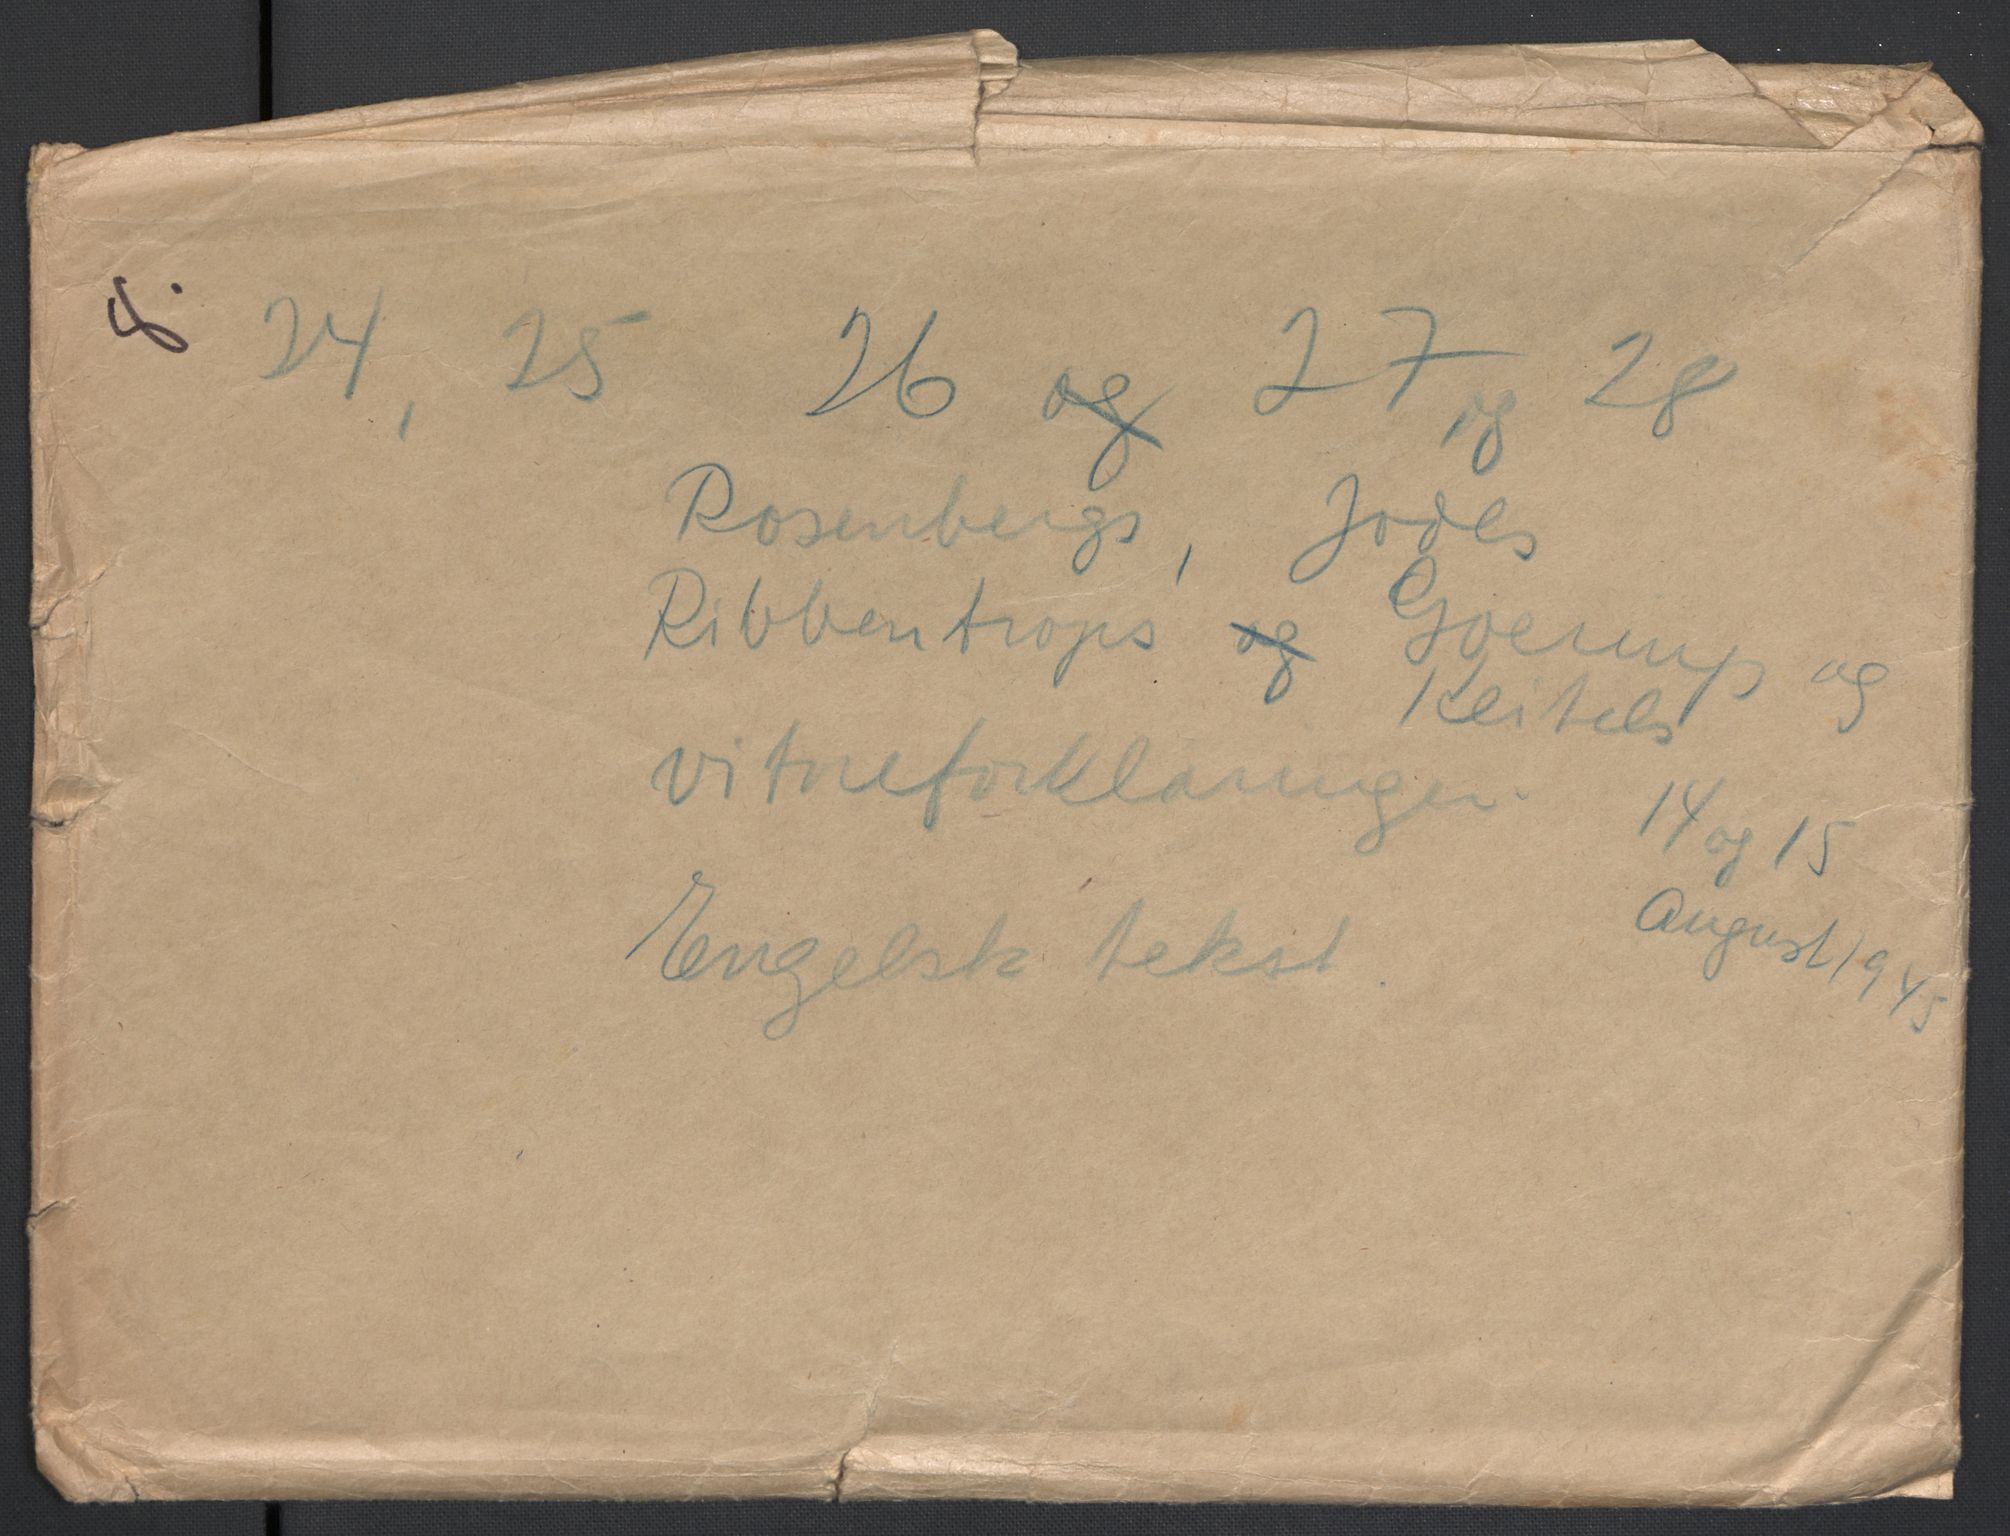 8.
24, 25 26 og 27 og 28
Rosenbergs, Jodls
Ribbentrops og Goerings og
Keitels
vitneforklaringer.
14 og 15
August 1945
Engelsk tekst.